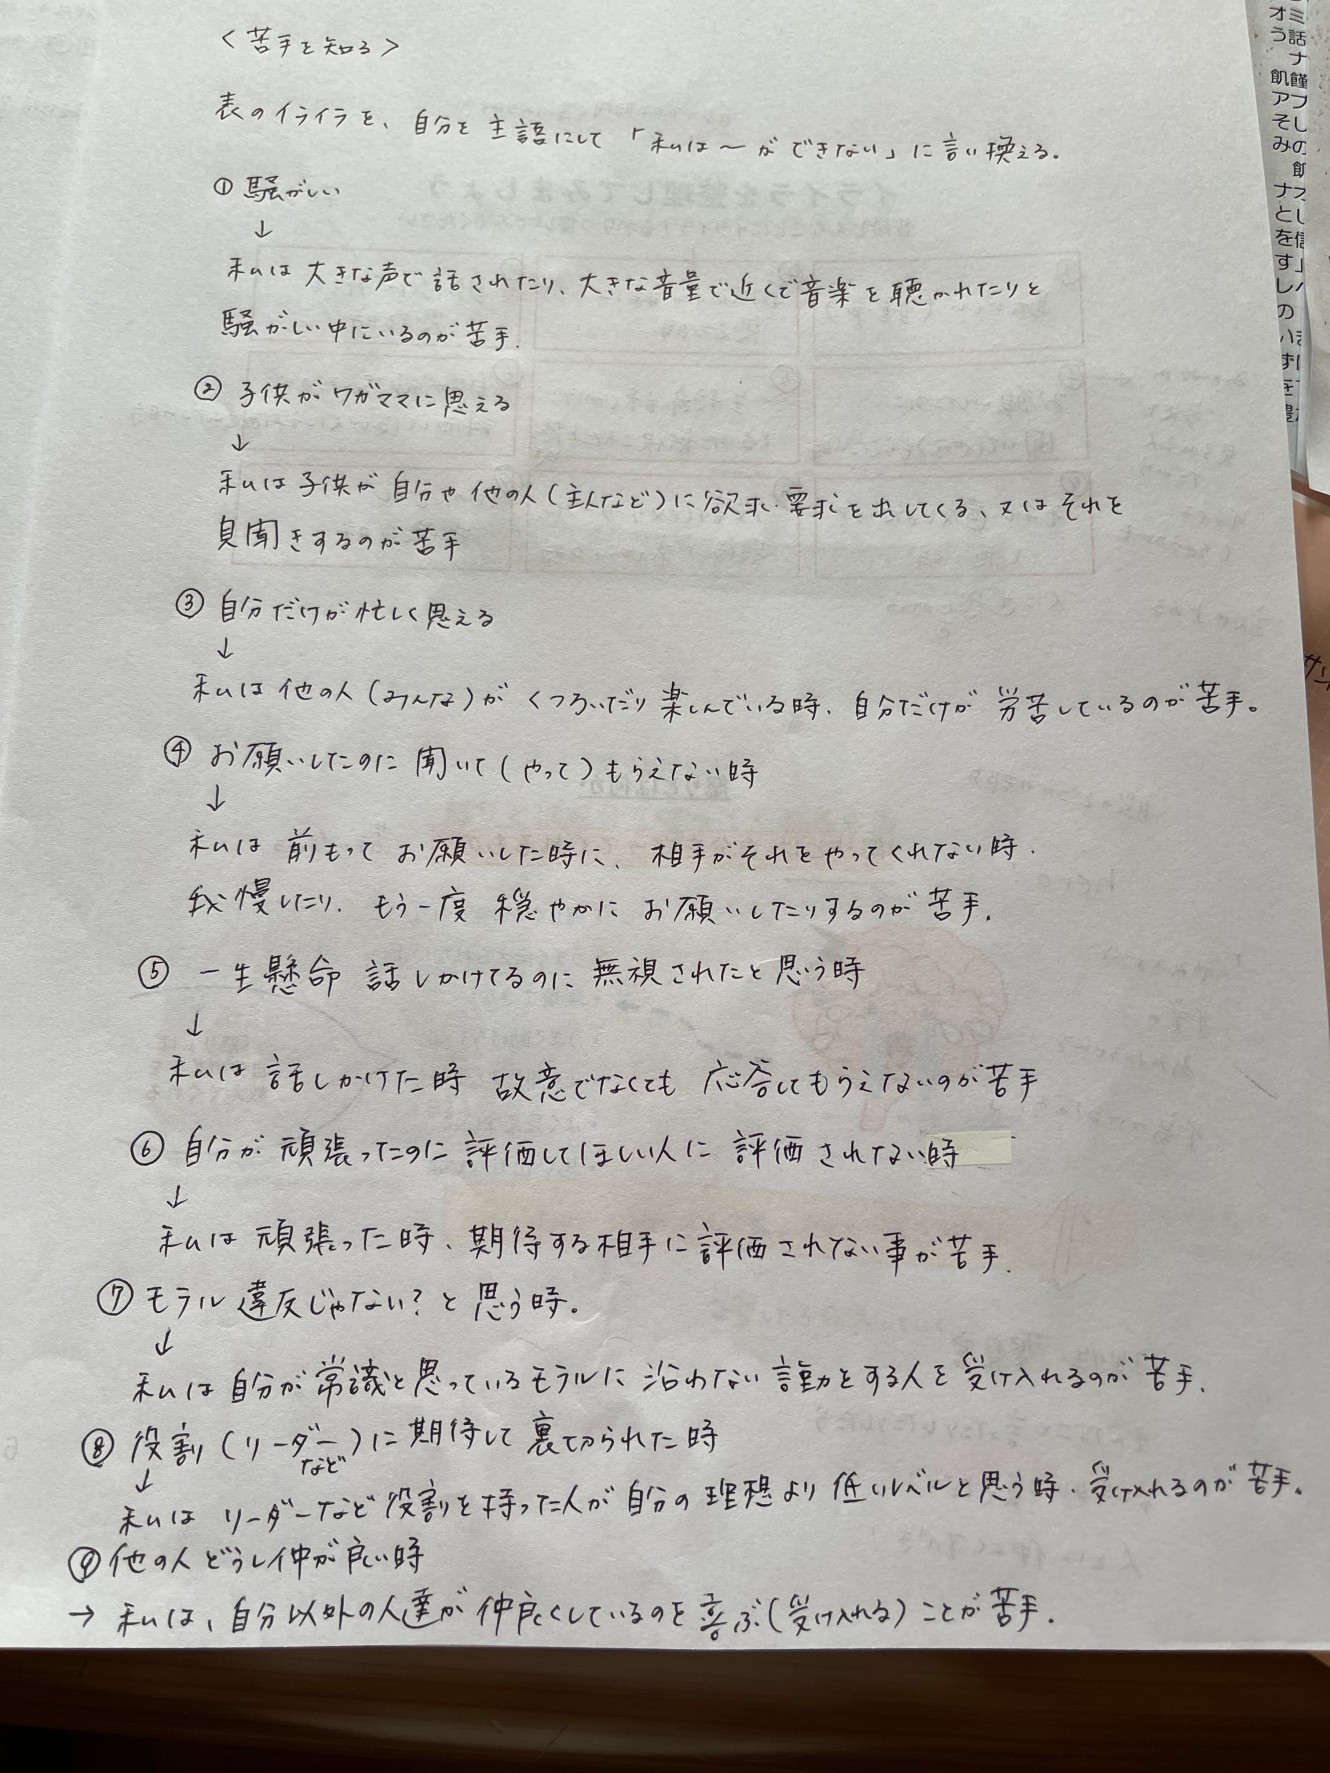 ＜苦手を知る＞
表のイライラを、自分を主語にして「私は〜ができない」に言い換える。
① 騒がしい
↓
私は大きな声で話されたり、大きな音量で近くで音楽を聴かれたりと
騒がしい中にいるのが苦手.
② 子供がワガママに思える
↓
私は子供が自分や他の人(主人など)に欲求・要求を出してくる、又はそれを
見聞きするのが苦手
③ 自分だけが忙しく思える
↓
私は他の人(みんな)がくつろいだり楽しんでいる時、自分だけが労苦しているのが苦手。
④ お願いしたのに聞いて(やって)もらえない時
↓
私は前もってお願いした時に、相手がそれをやってくれない時.
我慢したり、もう一度穏やかにお願いしたりするのが苦手.
⑤ 一生懸命話しかけてるのに無視されたと思う時
↓
私は話しかけた時故意でなくても応答してもらえないのが苦手
⑥ 自分が頑張ったのに評価してほしい人に評価されない時
↓
私は頑張った時、期待する相手に評価されない事が苦手.
⑦ モラル違反じゃない?と思う時。
↓
私は自分が常識と思っているモラルに沿わない言動をする人を受け入れるのが苦手.
⑧ 役割(リーダーなど)に期待して裏切られた時
↓
私はリーダーなど役割を持った人が自分の理想より低いレベルと思う時、受け入れるのが苦手。
⑨ 他の人どうし仲が良い時
→ 私は、自分以外の人達が仲良くしているのを喜ぶ(受け入れる)ことが苦手.